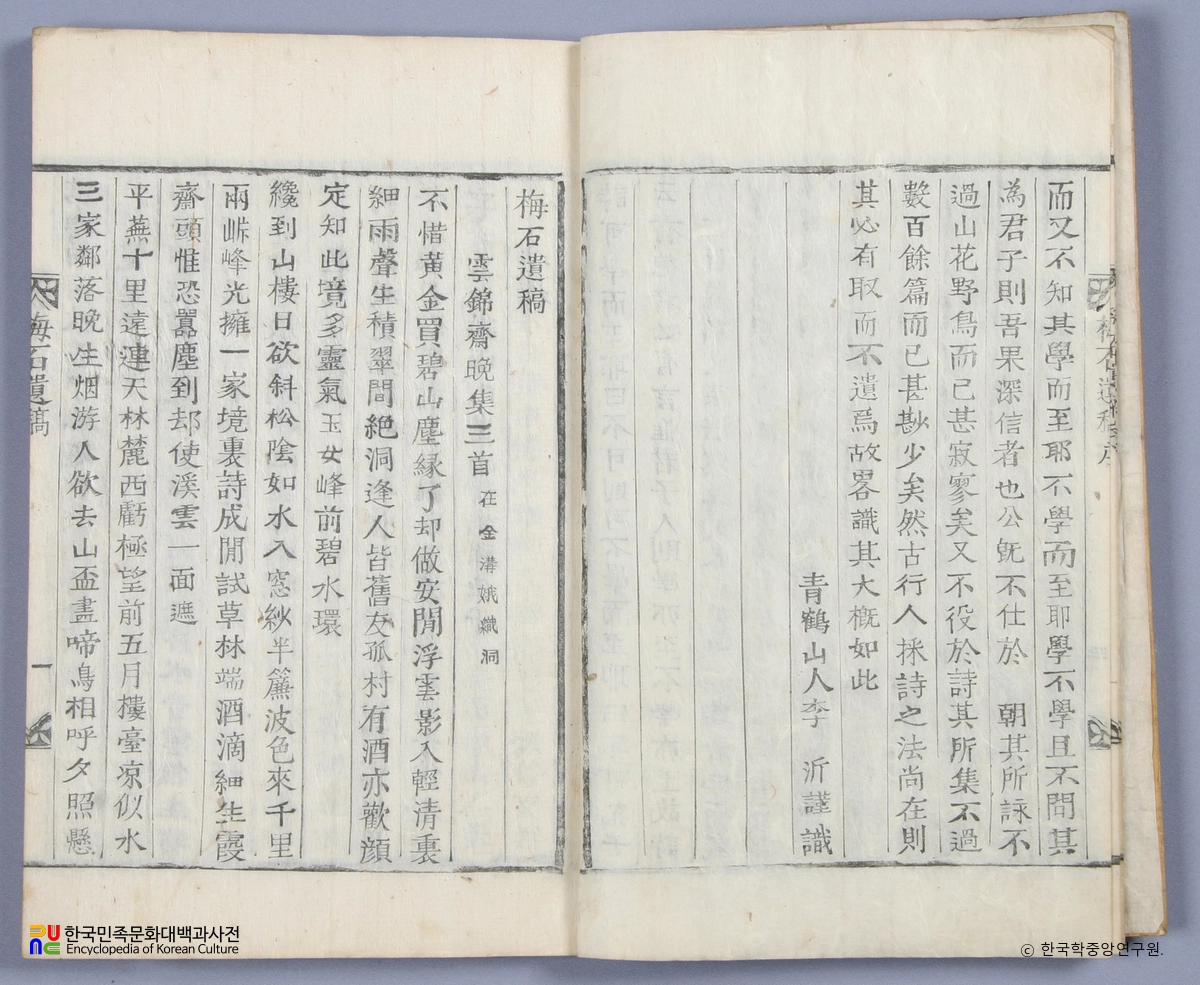 而又不知其學而至耶不學而至耶學不學且不問其
為君子則吾果深信者也公旣不仕於 朝其所詠不
過山花野鳥而已甚寂寥矣又不役於詩其所集不過
數百餘篇而已甚尠少矣然古行人採詩之法尚在則
其必有取而不遺焉故畧識其大槪如此
青鶴山人李 沂謹識
梅石遺稿
雲錦齋晩集三首 在金溝娥織洞
不惜黃金買碧山塵緣了却做安閒浮雲影入輕清裏
細雨聲生積翠間絶洞逢人皆舊友孤村有酒亦歡顔
定知此境多靈氣玉女峰前碧水環
纔到山樓日欲斜松陰如水入窓紗半簾波色來千里
兩峠峰光擁一家境裏詩成閒試草林端酒滴細生霞
齋頭惟恐囂塵到却使溪雲一面遮
平蕪十里遠連天林麓西虧極望前五月樓臺凉似水
三家鄰落晩生烟游人欲去山盃盡啼鳥相呼夕照懸
梅石遺稿
一
한국민족문화대백과사전
Encyclopedia of Korean Culture
ⓒ 한국학중앙연구원.